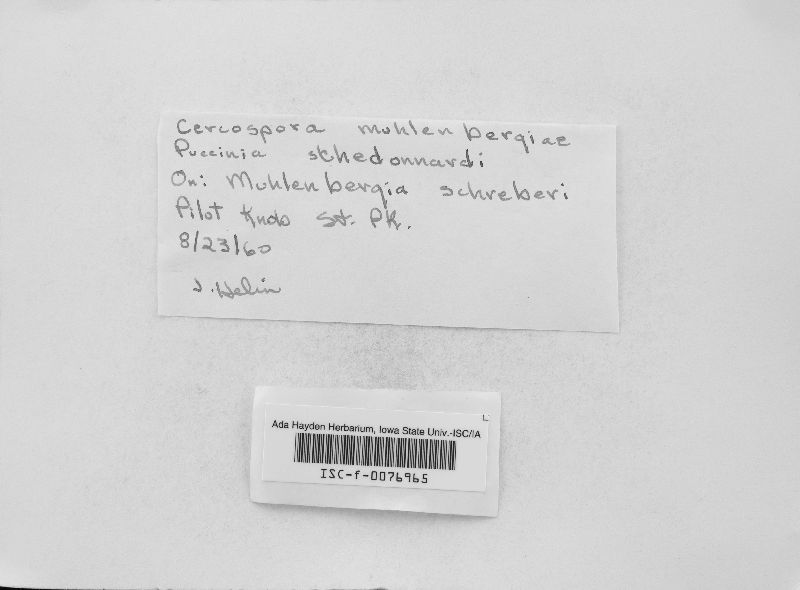 Cercospora muhlenbergiae
Puccinia schedonnardi
On: Muhlenbergia schreberi
Pilot Knob St. PK.
8/23/60
J. Helin
Ada Hayden Herbarium, Iowa State Univ.-ISC/IA
ISC-f-0076965